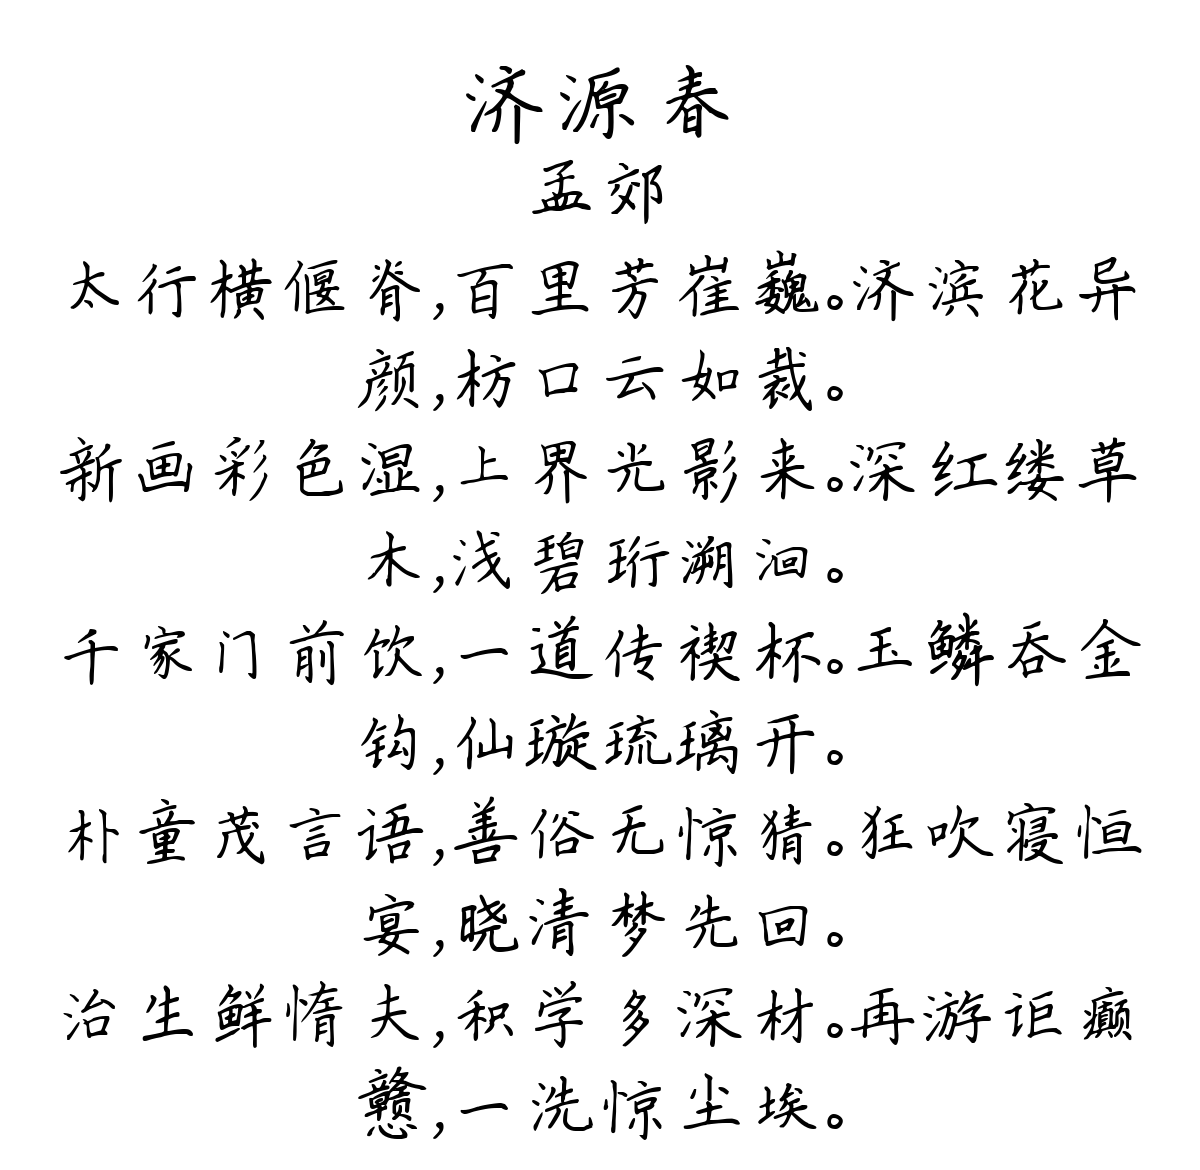 济源春
孟郊
太行横偃脊,百里芳崔巍。济滨花异
颜,枋口云如裁。
新画彩色湿,上界光影来。深红缕草
木,浅碧珩溯洄。
千家门前饮,一道传禊杯。玉鳞吞金
钩,仙璇琉璃开。
朴童茂言语,善俗无惊猜。狂吹寝恒
宴,晓清梦先回。
治生鲜惰夫,积学多深材。再游讵癫
戆,一洗惊尘埃。